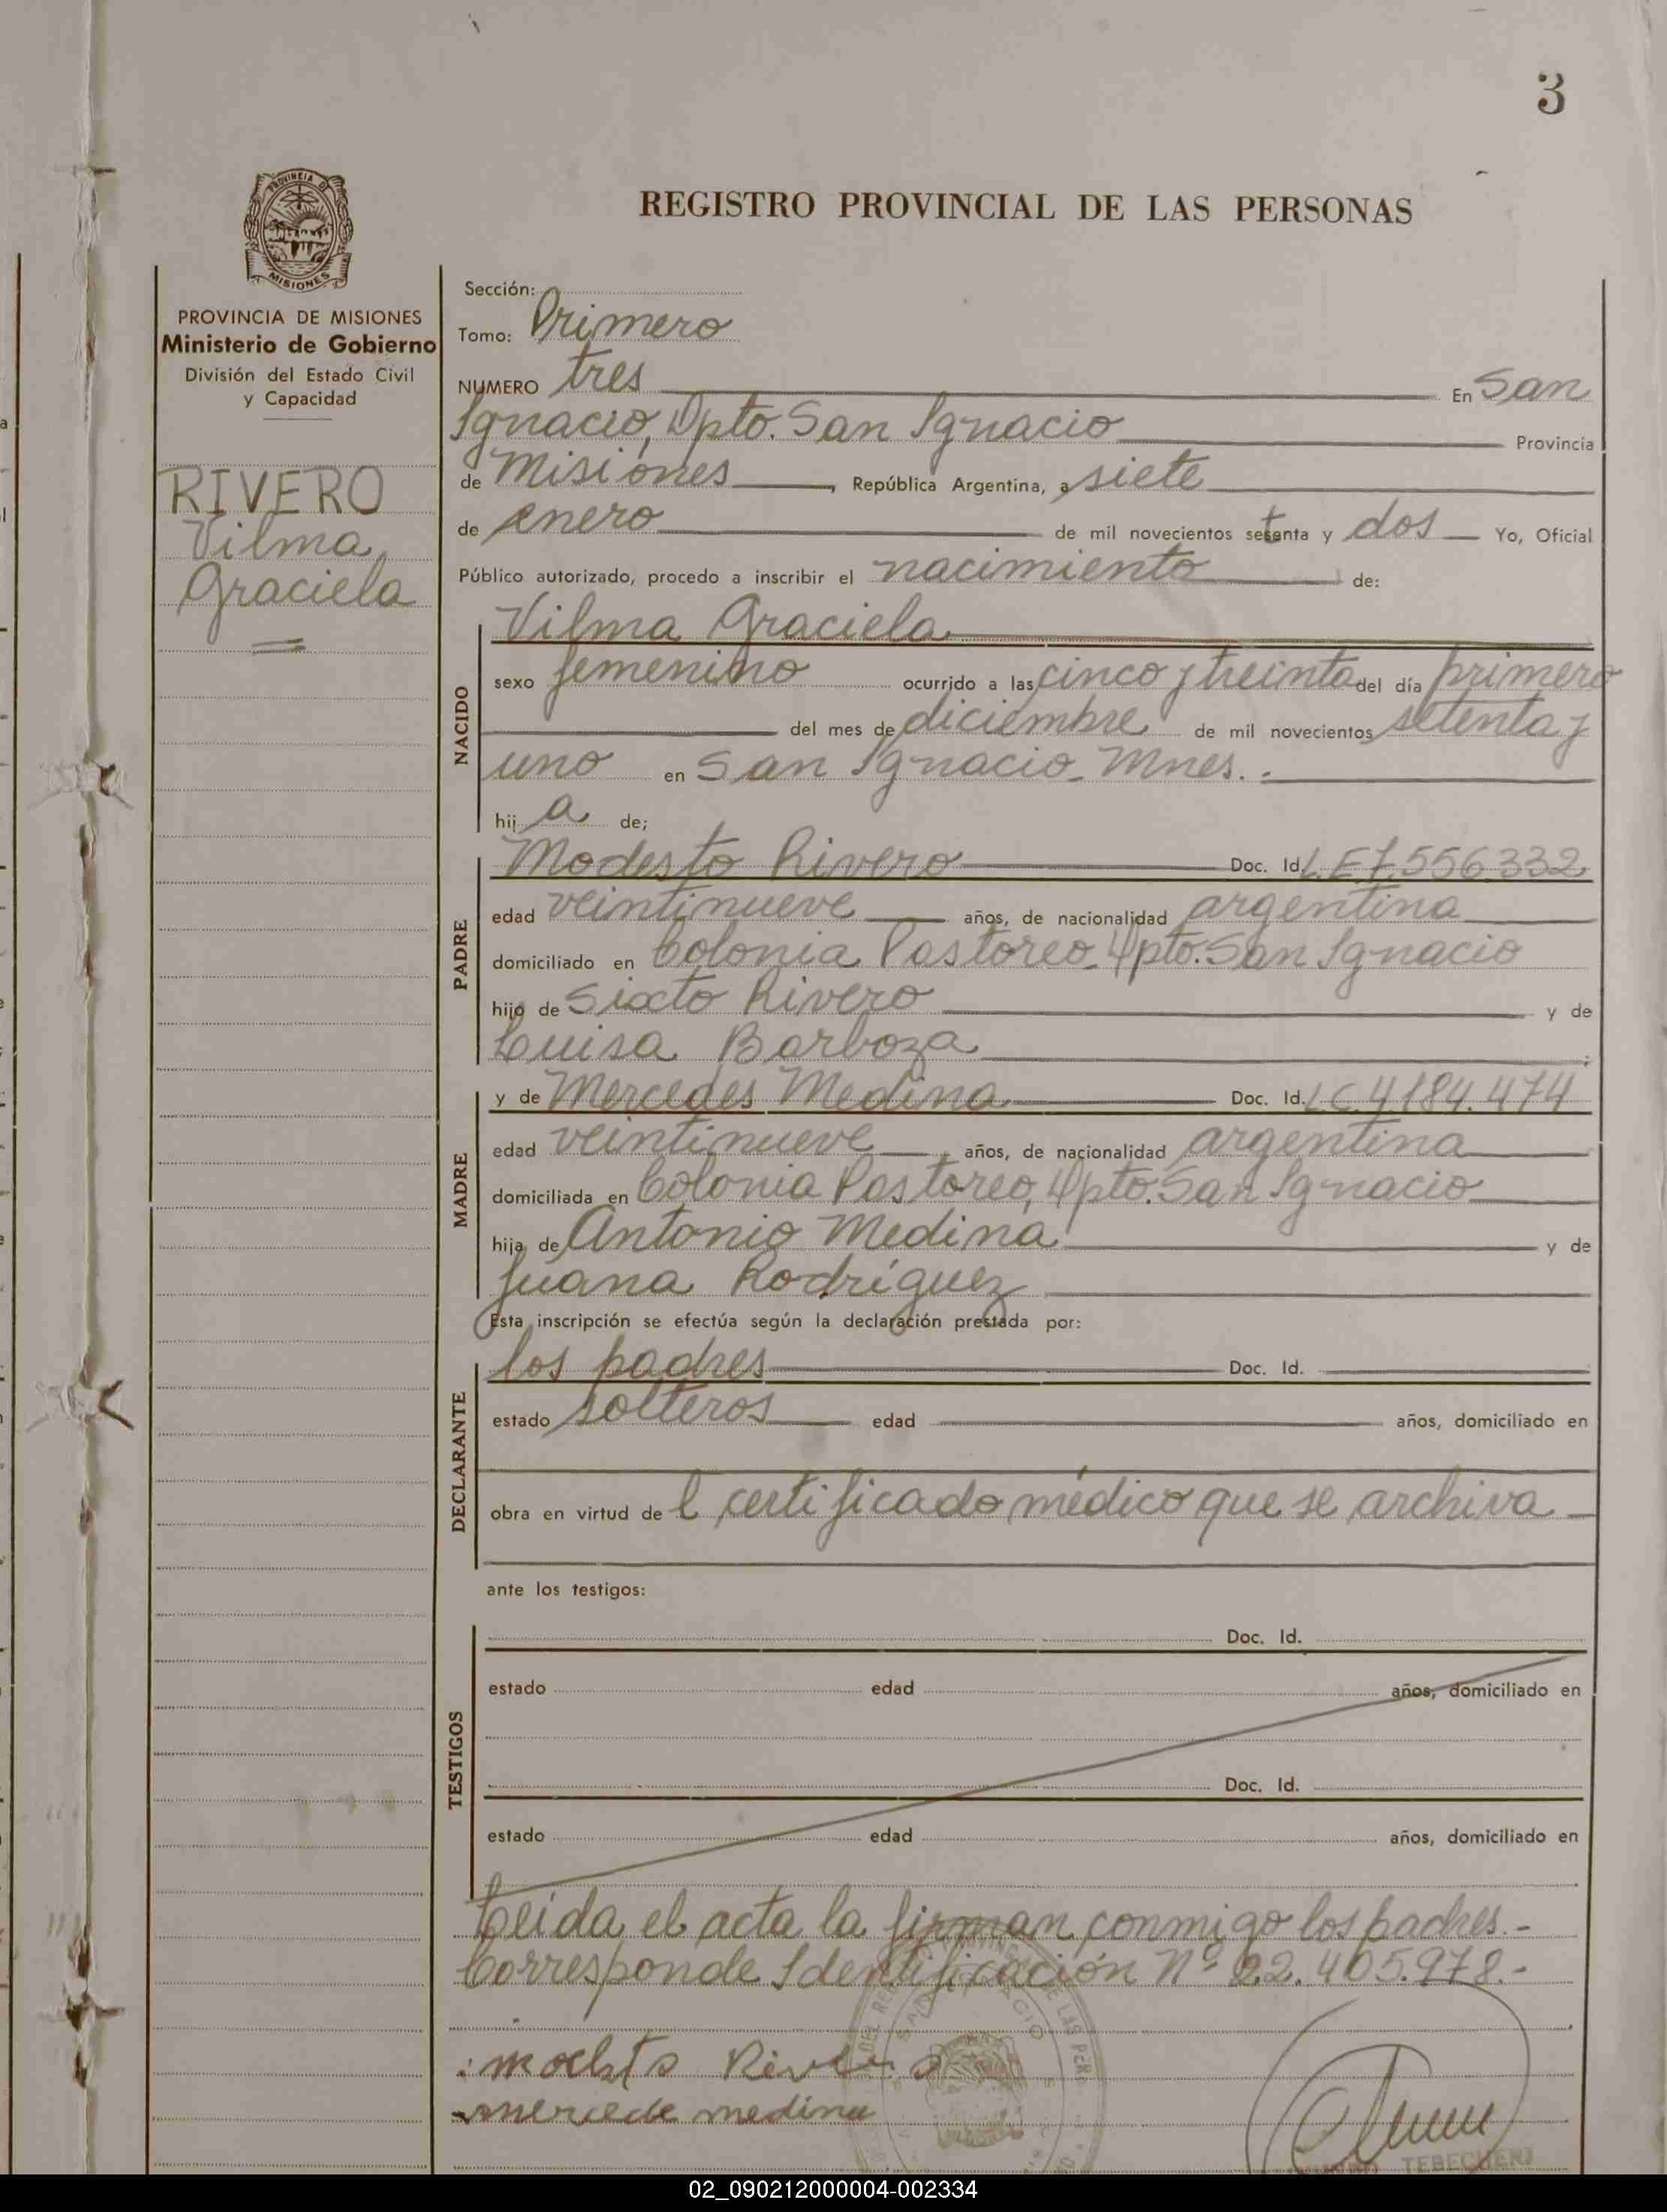 3
PROVINCIA DE
MISIONES
PROVINCIA DE MISIONES
Ministerio de Gobierno
División del Estado Civil
y Capacidad
RIVERO
Vilma
Graciela
REGISTRO PROVINCIAL DE LAS PERSONAS
Sección:
Tomo: Primero
NUMERO tres En San
Ignacio, Dpto. San Ignacio Provincia
de Misiones, República Argentina, a siete
de enero de mil novecientos setenta y dos Yo, Oficial
Público autorizado, procedo a inscribir el nacimiento de:
NACIDO
Vilma Graciela
sexo femenino ocurrido a las cinco y treinta del día primero
del mes de diciembre de mil novecientos setenta y
uno en San Ignacio - Mnes. -
hij a de;
PADRE
Modesto Rivero Doc. Id. L.E 7.556.332
edad veintinueve años, de nacionalidad argentina
domiciliado en Colonia Pastoreo - Dpto. San Ignacio
hijo de Sixto Rivero y de
Luisa Barboza ;
MADRE
y de Mercedes Medina Doc. Id. L.C. 4.184.474
edad veintinueve, años, de nacionalidad argentina
domiciliada en Colonia Pastoreo, Dpto. San Ignacio
hija de Antonio Medina y de
Juana Rodríguez
Esta inscripción se efectúa según la declaración prestada por:
DECLARANTE
los padres Doc. Id.
estado solteros edad años, domiciliado en
obra en virtud de l certificado médico que se archiva -
ante los testigos:
TESTIGOS
Doc. Id.
estado edad años, domiciliado en
Doc. Id.
estado edad años, domiciliado en
Leída el acta la firman conmigo los padres. -
Corresponde Identificación Nº 22.405.978. -
Rivero
mercede medina
TEBECHERI
02_090212000004-002334